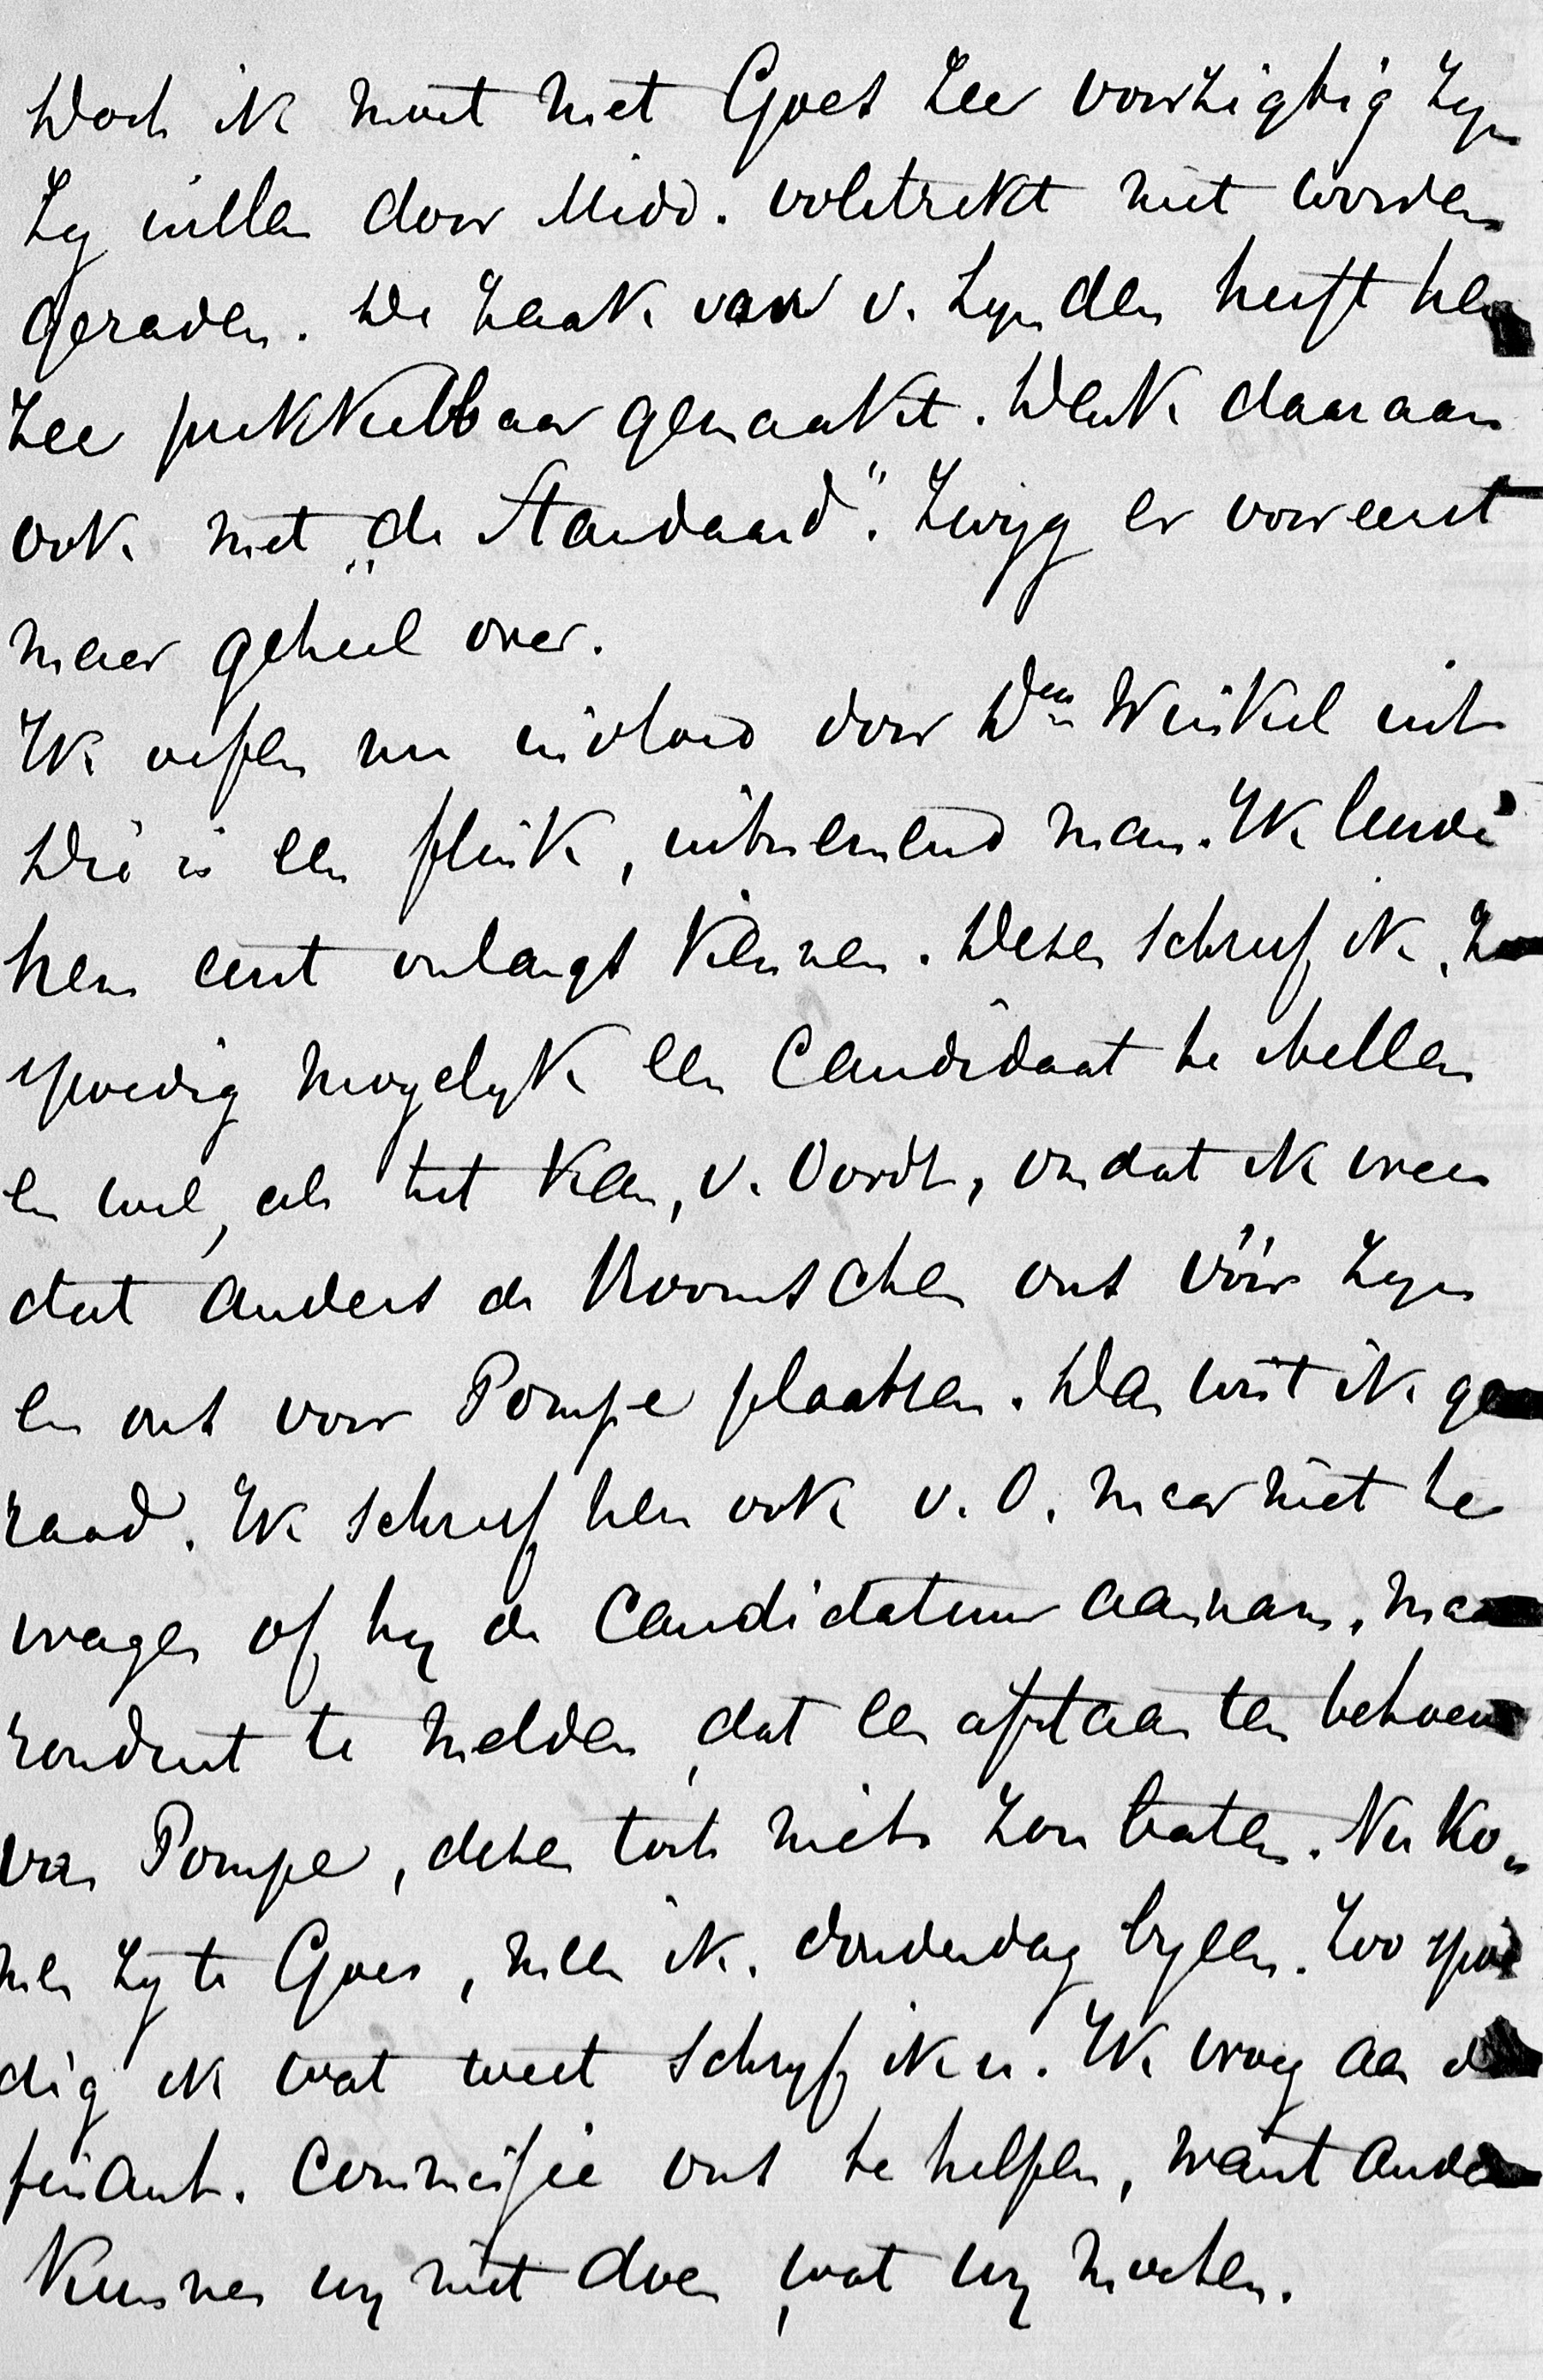 Doch ik moet met Goes zeer voorzigtig zyn
Zy willen door Midd. volstrekt niet worden
geraden. De zaak van v. Lynden heeft hen
zeer prikkelbaar gemaakt. Denk daaraan
ook met „de Standaard". Zwijg er vooreerst
maar geheel over.
Ik oefen nu invloed door Den Winkel uit
Die is een flink, uitnemend man. Ik leerde
hem eerst onlangs kennen. Dezen schreef ik, zoo
spoedig mogelyk een Candidaat te stellen
en wel, als het kan, v. Oordt, omdat ik vrees
dat anders de Roomschen ons vóór zyn
en ons voor Pompe plaatsen. Dan wist ik geen
raad. Ik schreef hem ook v. O. maar niet te
vragen of hy de Candidatuur aannam, maar
rondeut te melden, dat een afstaan ten behoeve
van Pompe, dezen toch niets zou baten. Nu ko„
men zy te Goes, meen ik, donderdag byeen. Zoo spoe
dig ik wat weet schryf ik u. Ik vroeg aan de
finant. Commissie ons te helpen, want anders
kunnen wy niet doen, wat wy mochten.